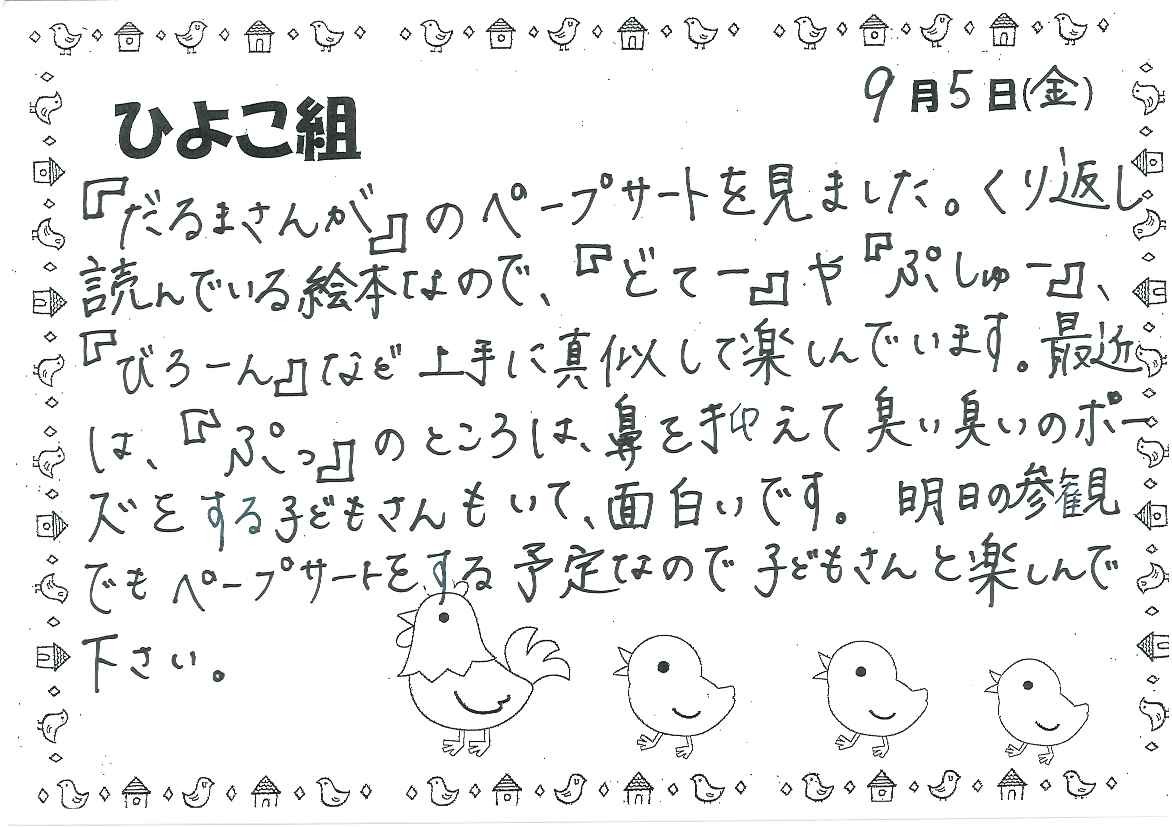 9月5日(金)
ひよこ組
『だるまさんが』のペープサートを見ました。くり返し
読んでいる絵本なので、『どてー』や『ぷしゅー』、
『びろーん』など上手に真似して楽しんでいます。最近
は、『ぷっ』のところは、鼻を抑えて臭い臭いのポー
ズをする子どもさんもいて、面白いです。 明日の参観
でもペープサートをする予定なので子どもさんと楽しんで
下さい。